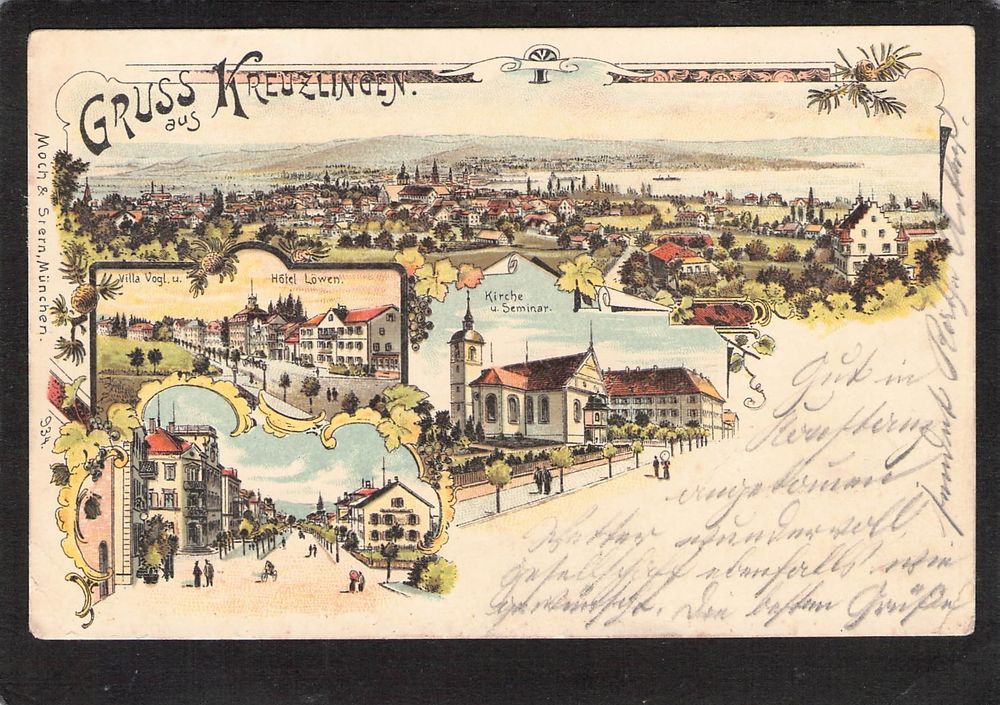 GRUSS
aus
KREUZLINGEN.
Moch & Stern, München.
934
Villa Vogl, u. Hôtel Löwen.
Kirche
u. Seminar.
Gut in
Konstanz
angekommen
Wetter wundervoll
Gesellschaft ebenfalls wie
gewünscht. Die besten Grüße
sendet